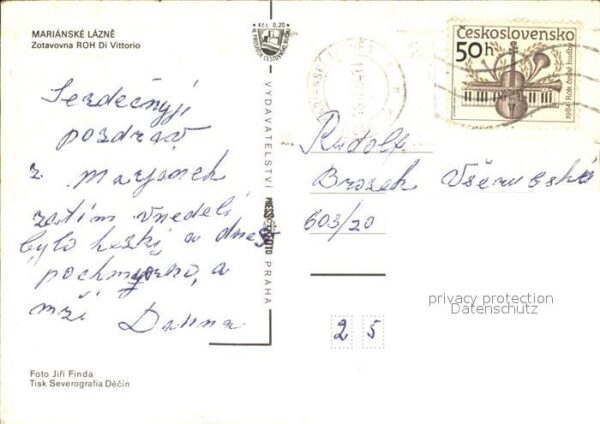 MARIÁNSKÉ LÁZNĚ
Zotavovna ROH Di Vittorio
Kčs 0,20
Československo
50h
1984 Rok české hudby
Serdečnyji
pozdrav
z Marjanek
zatím vnedeli
bylo heski a dnes
pochmurno a
mží Danna
VYDAVATELSTVÍ PRESSFOTO PRAHA
Rudolf
Brozek Všerubská
603/20
privacy protection
Datenschutz
2 5
Foto Jiří Finda
Tisk Severografia Děčín